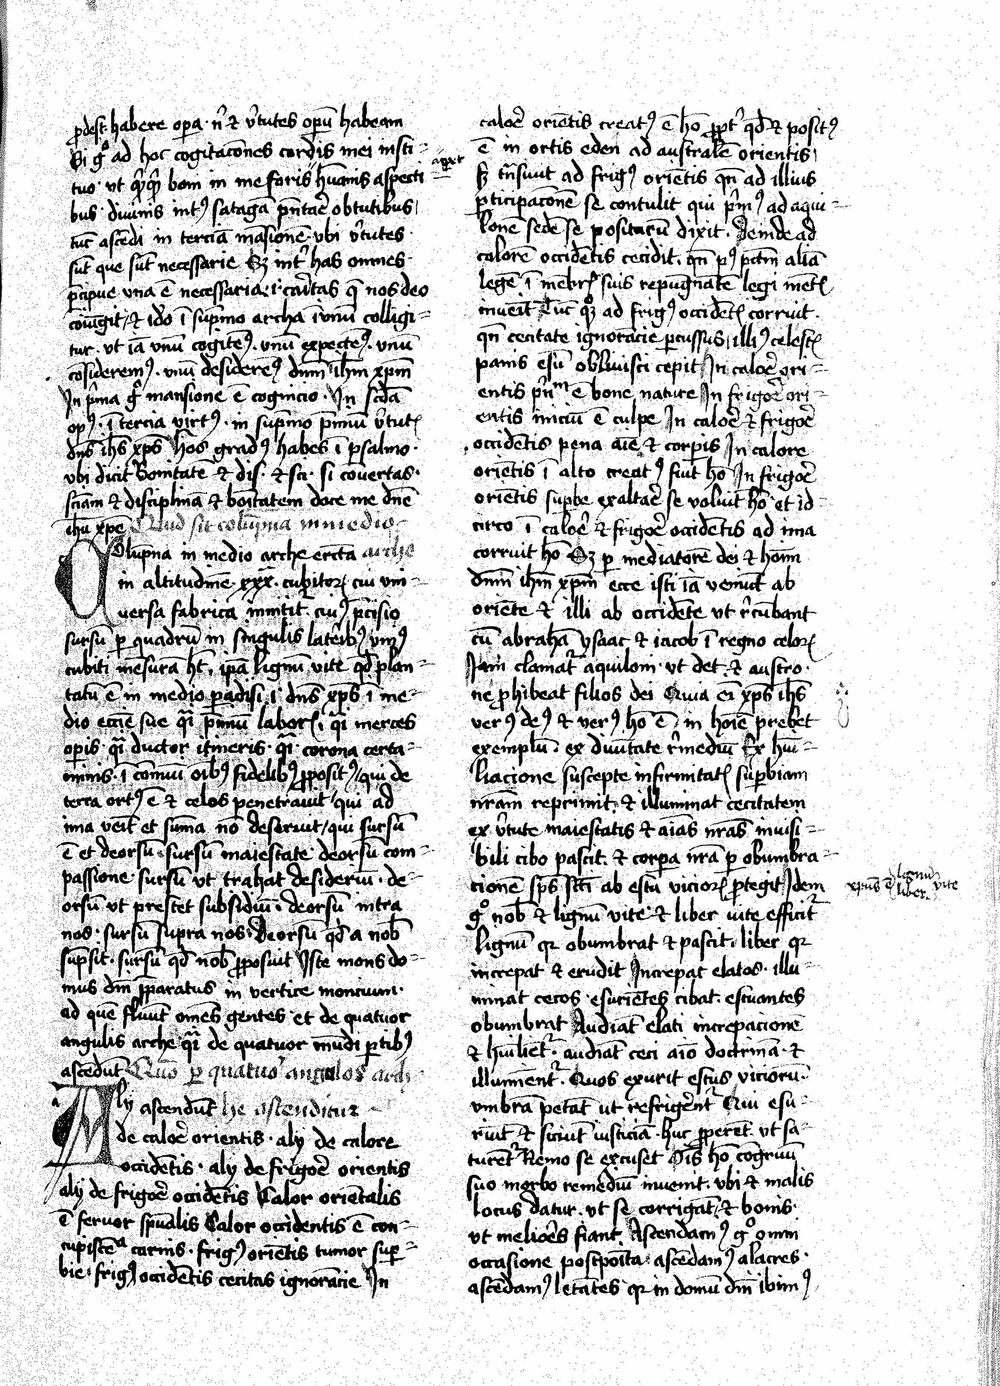 pdest habere opa · nͥ et vͥtutes opm̄ habeam
Si gͦ ad hoc cogitacōnes cordis mei insti=
tuo · ut qͥcqͥd bom̄ in me foris hūanis aspecti
bus · diuinis intꝰ satagā pn̄tare obtutibus
tūc ascēdi in terciā māsionē vbi vͥtutes ·
sūt que sūt necessarie Sꝫ intͥ has omnes ·
pͥcipue una ē necessaria · i · caͥtas q̄ nos deo
cōiūgit / et idͦo ī supͥmo archa ī vnū colligi=
tur · vt iā vnū cogitemꝰ · vnū expectemꝰ · vnū
cōsideremꝰ · vnū desideremꝰ dn̄m ihm̄ xpm̄
In pͥma gͦ mansione ē cognicio · In scd̄a
opꝰ · ī tercia virtꝰ · in supͥmo pͥmiū vͥtutꝭ
dn̄s ih̄s xp̄s Hos gradꝰ habes ī psalmo ·
vbi dicit Bonitatē et dis · et sci · Si cōuertas ·
sciam et disciplinā et bōitatem doce me dn̄e
ihū xpe Quid sit colūpna in medio
Colūpna in medio arche erecta arche
in altitudinē · xxx · cubitoꝝ cui vni=
versa fabrica innititͬ cuiꝰ pͥcisio
sursū p quadrū in singulis lateͥibꝰ vniꝰ
cubiti mēsura hꝫ, ipā lignū vite qd̄ plan=
tatū ē in medio padisi · i · dn̄s xp̄s ī me=
dio eccīe sue qͣi pͥmiū laborꝭ · qͣi merces
opis · qͣi ductor itineris · qͣi corona certa=
minis · ī cōmuni oībꝰ fidelibꝰ pposit ꝰ / qui de
terra ortꝰ ē et celos penetrauit / qui ad
ima veīt et suma nō deseruit / qui sursū
ē et deorsū · sursū maiestate deorsū com=
passione · sursū ut trahat desideriū · de=
orsū vt prestet subsidiū · deorsū intra
nos · sursū supra nos · Deorsū qd̄ a nob̄
supsit · sursū qd̄ nob̄ pposuit Iste mons do=
mus dn̄i pparatus in vertice moncium ·
ad quē fluūt omēs gentes et de quatuor
angulis arche qͣi de quatuor mūdi ptibꝰ
ascēdūt Quō p quatuoͬ angulos arch
Aly ascendūt he ascenditur
de caloͤ orientis · aly de calore
occidētis · aly de frigoͤ orientis
aly de frigoͤ occidētis Calor orientalis
ē feruor spūalis Calor occidentis ē con=
cupiscēͣ carnis · frigꝰ oriētis tumor sup=
bie · frigꝰ occidētis cecitas ignorācie In
caloͤ oriētis creatꝰ ē hō pptͥ qd̄ et positꝰ
ē in ortis eden ad australē orientis
Sꝫ tn̄siuit ad frigꝰ oriētis qn̄ ad illius
pticipacōnē se contulit qui pͥmꝰ ad aqui=
lonē sedē se positurū dixit · Deinde ad
calorē occidētis cecidit · qn̄ pꝰ pctm̄ aliā
legē ī mēbrꝭ suis repugnātē legi mētꝭ
inuēit Tūc qꝫ ad frigꝰ occidētꝭ corruit ·
qn̄ cecitate ignorācie pcussus / illiꝰ celestꝭ
panis esū obliuisci cepit In caloͤ ori=
entis pn̄ͫ ē bone nature In frigoͤ ori=
entis iniciū ē culpe In caloͤ et frigoͤ
occidētis pena aīe et corpis In calore
oriētis ī alto creatꝰ fuit hō In frigoͤ
oriētis supbe exaltaͤ se voluit hō et id=
circo ī caloͤ et frigoͤ occidētis ad ima
corruit hō Sꝫ p mediatorē dei et hoīm
dn̄m ihm̄ xpm̄ ecce isti iā veniūt ab
oriēte et illi ab occidēte vt rͥcubant
cū abrahā ysaac et iacob ī regno celoꝝ
Iam clamatͬ aquiloni · vt det · et austro ·
ne phibeat filios dei Quia eī xp̄s ih̄s
verꝰ deꝰ et verꝰ hō ē · in hoīe prebet
exemplū · ex diuītate rͥmediū Ex hui=
liacione suscepte infirmitatꝭ supbiam
nrām reprimit · et illuminat cecitatem
ex vͥtute maiestatis et aīas nrās inuisi=
bili cibo pascit · et corpa nrā p obumbra=
cionē sp̄s scī ab estu vicioꝝ ptegit Idem
gͦ nob̄ et lignū vite et liber vite efficitͬ
lignū qꝛ obumbrat et pascit · liber qꝛ
increpat et erudit Increpat elatos · illu=
minat cecos · esurientes cibat · estuantes
obumbrat Audiāt elati increpacionē
et huīlientͬ · audiāt ceci aīo doctrinā · et
illumēntͬ · Quos exurit estus vicioru ·
vmbrā petāt ut refrigerentͬ Qui esu=
riūt et siciūt iusticiā · huc pperēt · vt sa=
turētͬ Nemo se excuset Oīs hō cogruū
suo morbo remediū inuenit · vbi et malis
locus datur · vt se corrigāt, et bonis ·
vt melioͤs fiant · Ascendamꝰ gͦ omni
occasione postpoīta · ascēdamꝰ alacres ·
ascēdamꝰ letātes qꝛ in domū dn̄i ibimꝰ
xpūs ē lignū
liber vite